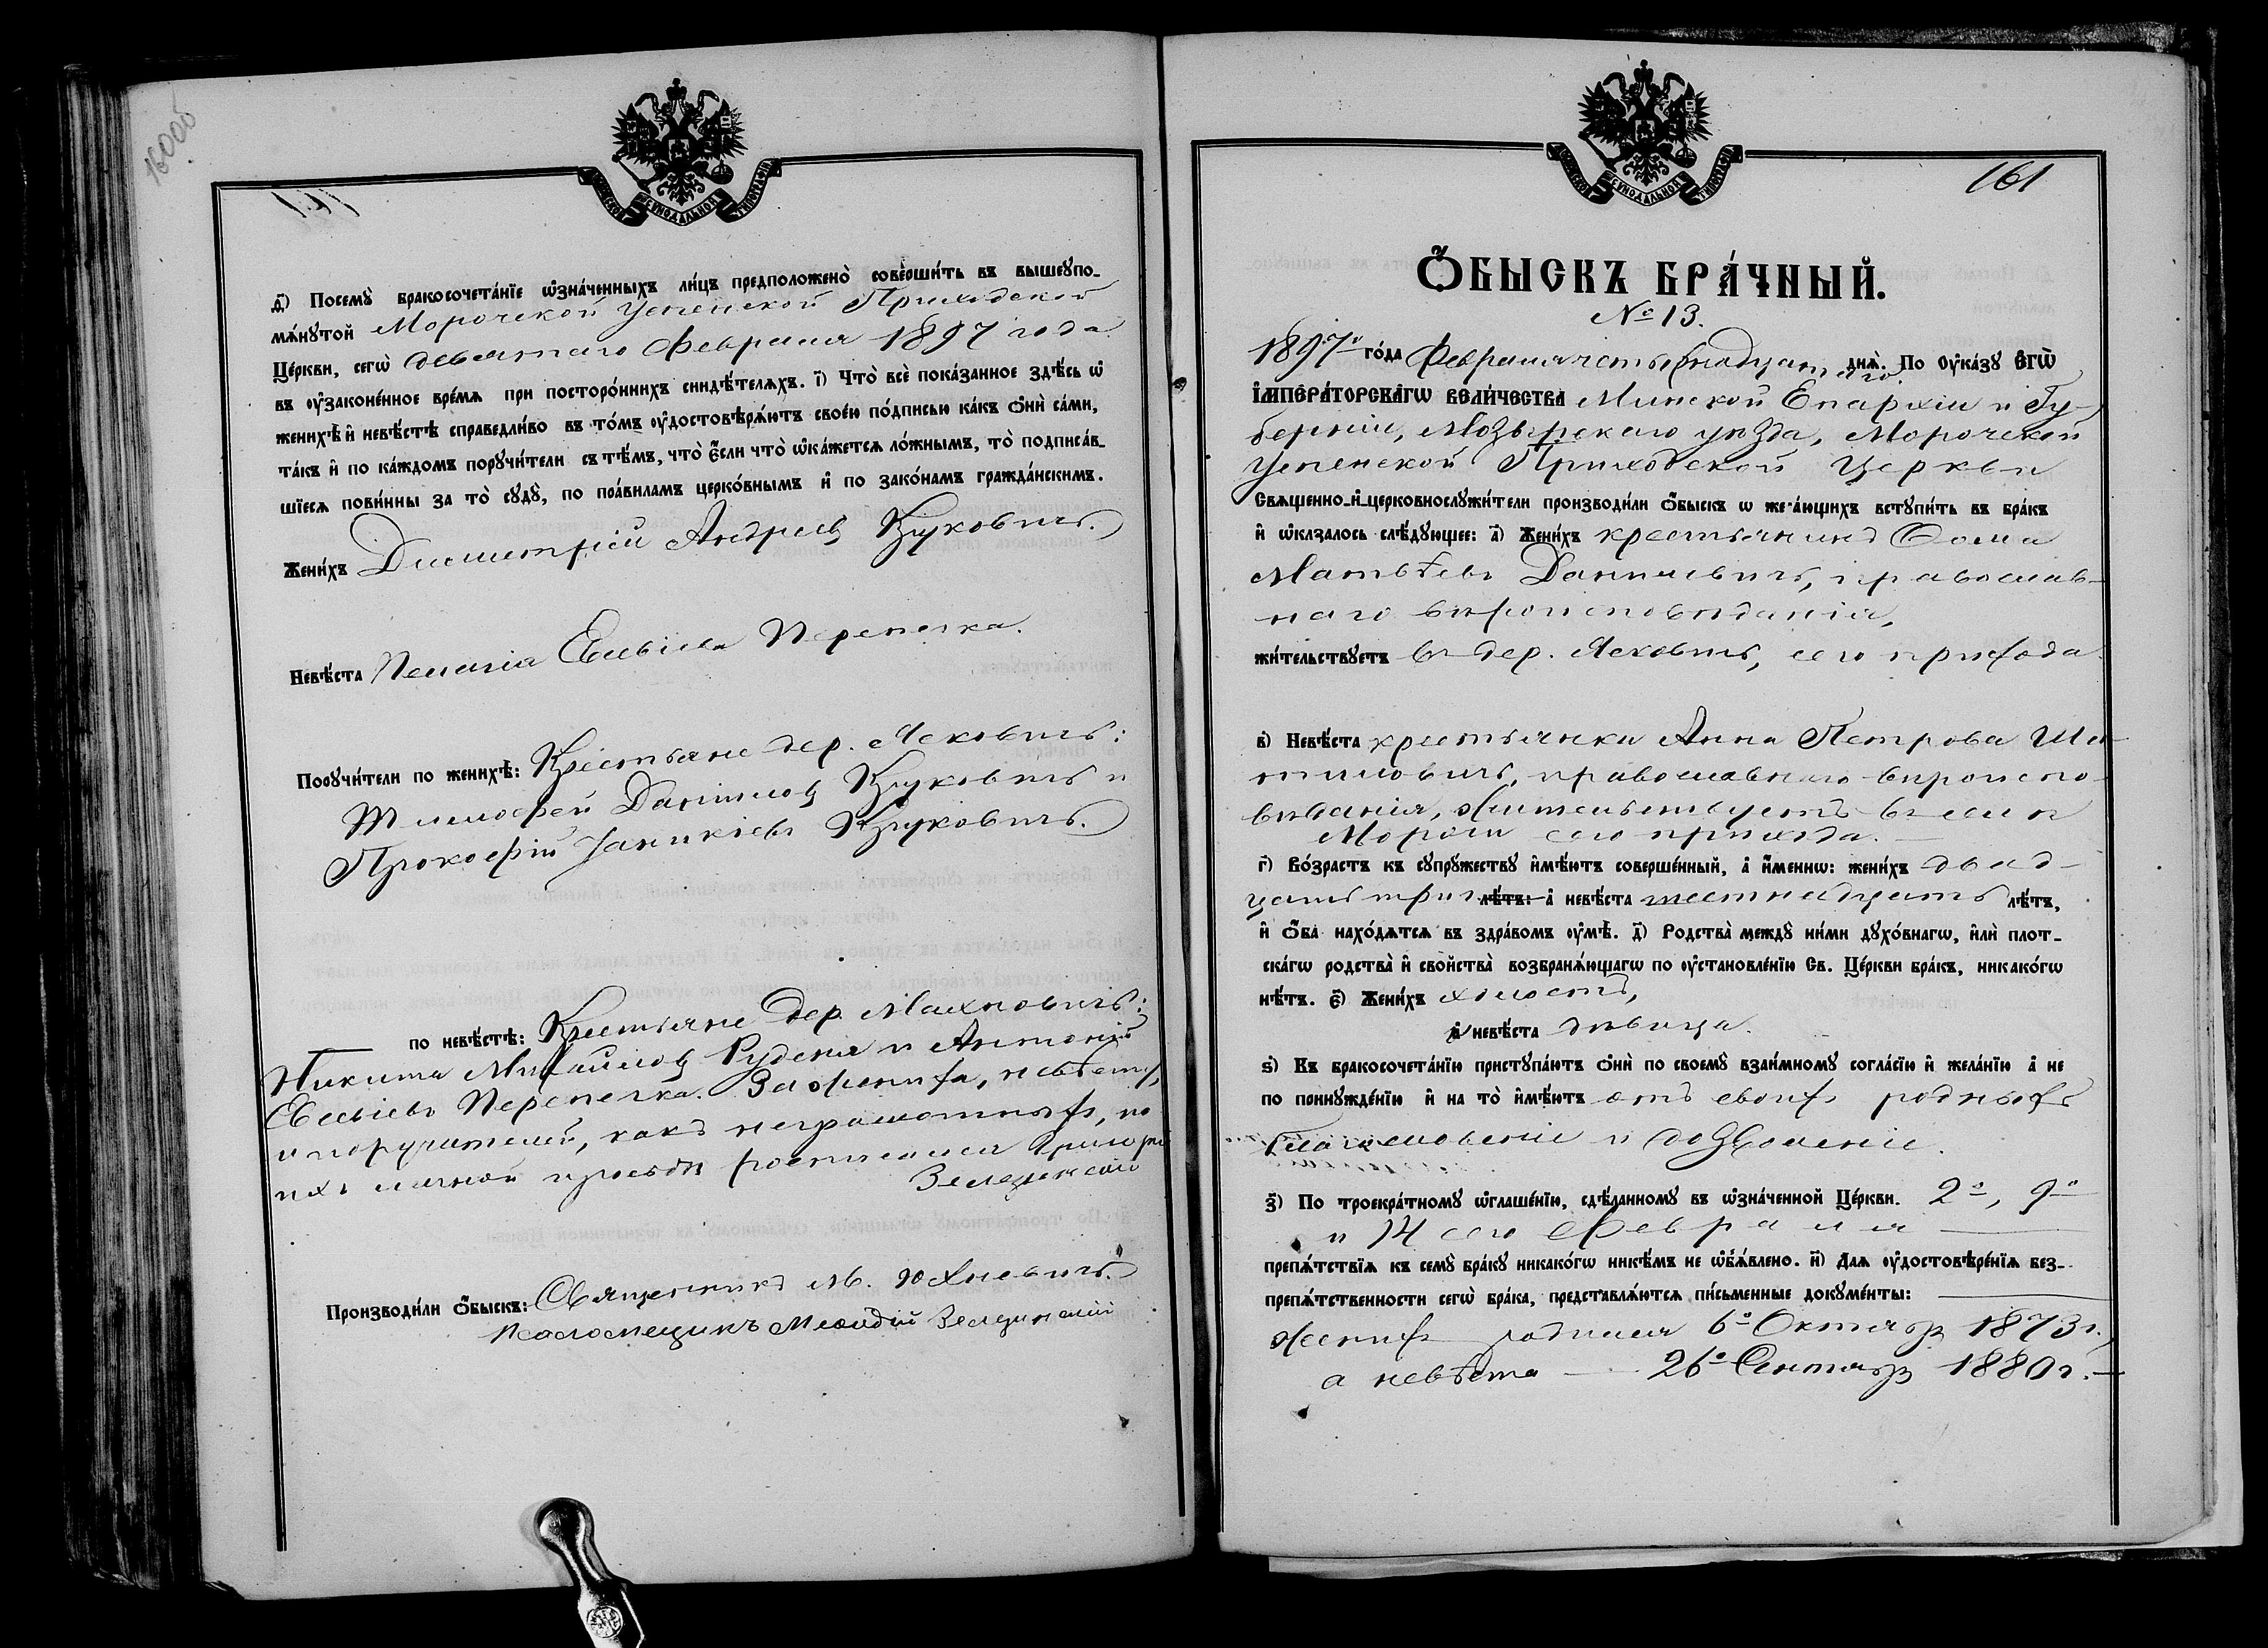 160об
д҃) Посемꙋ̀ бракосочета́нїе ѡ҆зна́ченныхъ ли́цъ предположено̀ соверши́ть въ вышеꙋпо-
мѧ́нꙋтой Морочской Успенской Приходской
Це́ркви, сегѡ̀ девятаго Февраля 1897 года
въ ᲂу҆законе́нное вре́мѧ при посторо́ннихъ сиидѣ́телѧхъ. і҃) Что̀ всѐ пока́занное здѣ́сь ѡ҆
женихѣ̀ и҆ невѣ́стѣ справедли́во въ то́мъ ᲂу҆достовѣрѧ́ютъ свое́ю по́дписью ка́къ ѻ҆нѝ са́ми,
та́къ и҆ по ка́ждомъ порꙋчи́тели съ тѣ́мъ, что̀ є҆́сли что̀ ѡ҆ка́жетсѧ ло́жнымъ, то̀ подписа́в-
шїесѧ пови́нны за то̀ сꙋдꙋ̀, по пра́виламъ церко́внымъ и҆ по зако́намъ гражда́нскимъ.
Жени́хъ Димитрій Андреевъ Жуковичъ.
Невѣ́ста Пелагія Евсѣева Перепечка.
Порꙋчи́тели по женихѣ̀: Крестьяне дер. Ясковичъ:
Тимофей Даніиловъ Жуковичъ и
Прокофій Іаникіевъ Жуковичъ.
по невѣ́стѣ: Крестьяне дер. Махновичъ:
Никита Михайловъ Рудскій и Антоній
Евсѣевъ Перепечка. За жениха, невѣсту,
и поручителей, какъ неграмотныхъ, по
ихъ личной просьбѣ росписался Григорій
Зелезинскій
Производи́ли ѻ҆́быскъ: Священникъ М. Юхневичъ.
Псаломщикъ Меѳодій Зелезинскій
161
МОСКОВСКОЙ СѴНОДАЛЬНОЙ ТИПОГРАФІИ
Ѻ҆́БЫСКЪ БРА́ЧНЫЙ.
№ 13.
1897го го́да Февраля четырнадцатаго днѧ̀. По ᲂу҆ка́зꙋ Е҆ГѠ̀
І҆МПЕРА́ТОРСКАГѠ ВЕЛИ́ЧЕСТВА Минской Епархіи и Гу-
берніи, Мозырскаго уѣзда, Морочской
Успенской Приходской Церкви
Свѧщенно-и҆-церковнослꙋжи́тели производи́ли ѻ҆́быскъ ѡ же ающихъ встꙋпи́ть въ бра́къ
и҆ ѡ҆казалось слѣ́дꙋющее: а҃) Жени́хъ крестьянинъ Ѳома
Матвѣевъ Данилевичъ, православ-
наго вѣроисповѣданія,
жи́тельствꙋетъ въ дер. Ясковичъ, сего прихода
в҃) Невѣ́ста крестьянка Анна Петрова Ша-
тиловичъ, православнаго вѣроиспо-
вѣданія, жительствуетъ въ селѣ
Морочи сего прихода.
г҃) Во́зрастъ къ сꙋпрꙋжествꙋ и҆мѣ́ютъ соверше́нный, а҆ и҆́меннѡ: жени́хъ двад-
цать три лѣ́тъ: а҆ невѣ́ста шестнадцать лѣ́тъ,
и҆ ѻ҆́ба нахо́дѧтсѧ въ здра́вомъ ᲂу҆мѣ̀. д҃) Родства̀ междꙋ ни́ми дꙋхо́внагѡ, и҆лѝ плот-
ска́гѡ родства̀ и҆ свойства̀ возбранѧ́ющагѡ по ᲂу҆становле́нїю Св. Це́ркви бра́къ, никако́гѡ
нѣ́тъ. є҃) Жени́хъ холостъ,
а҆ невѣ́ста дѣвица.
ѕ҃) Къ бракосочета́нїю пристꙋпа́ютъ ѻ҆нѝ по своемꙋ̀ взаи́мномꙋ согла́сїю и҆ жела́нїю а҆ не
по принꙋжде́нїю и҆ на то̀ и҆мѣ́ютъ отъ своихъ родныхъ
благословеніе и дозволеніе.
з҃) По троекра́тномꙋ ѡ҆глаше́нїю, сдѣ́ланномꙋ въ ѡ҆зна́ченной Це́ркви. 2го, 9го
и 14 сего Февраля
препѧ́тствїѧ къ семꙋ̀ бра́кꙋ никако́гѡ никѣ́мъ не ѡ҆б̾ѧ́влено. и҃) Длѧ ᲂу҆достовѣре́нїѧ без-
препѧ́тственности сегѡ̀ бра́ка, представлѧ́ютсѧ пи́сьменные докꙋме́нты:
Женихъ родился 6го Октября 1873 г.,
а невѣста — 26го Сентября 1880 г. —